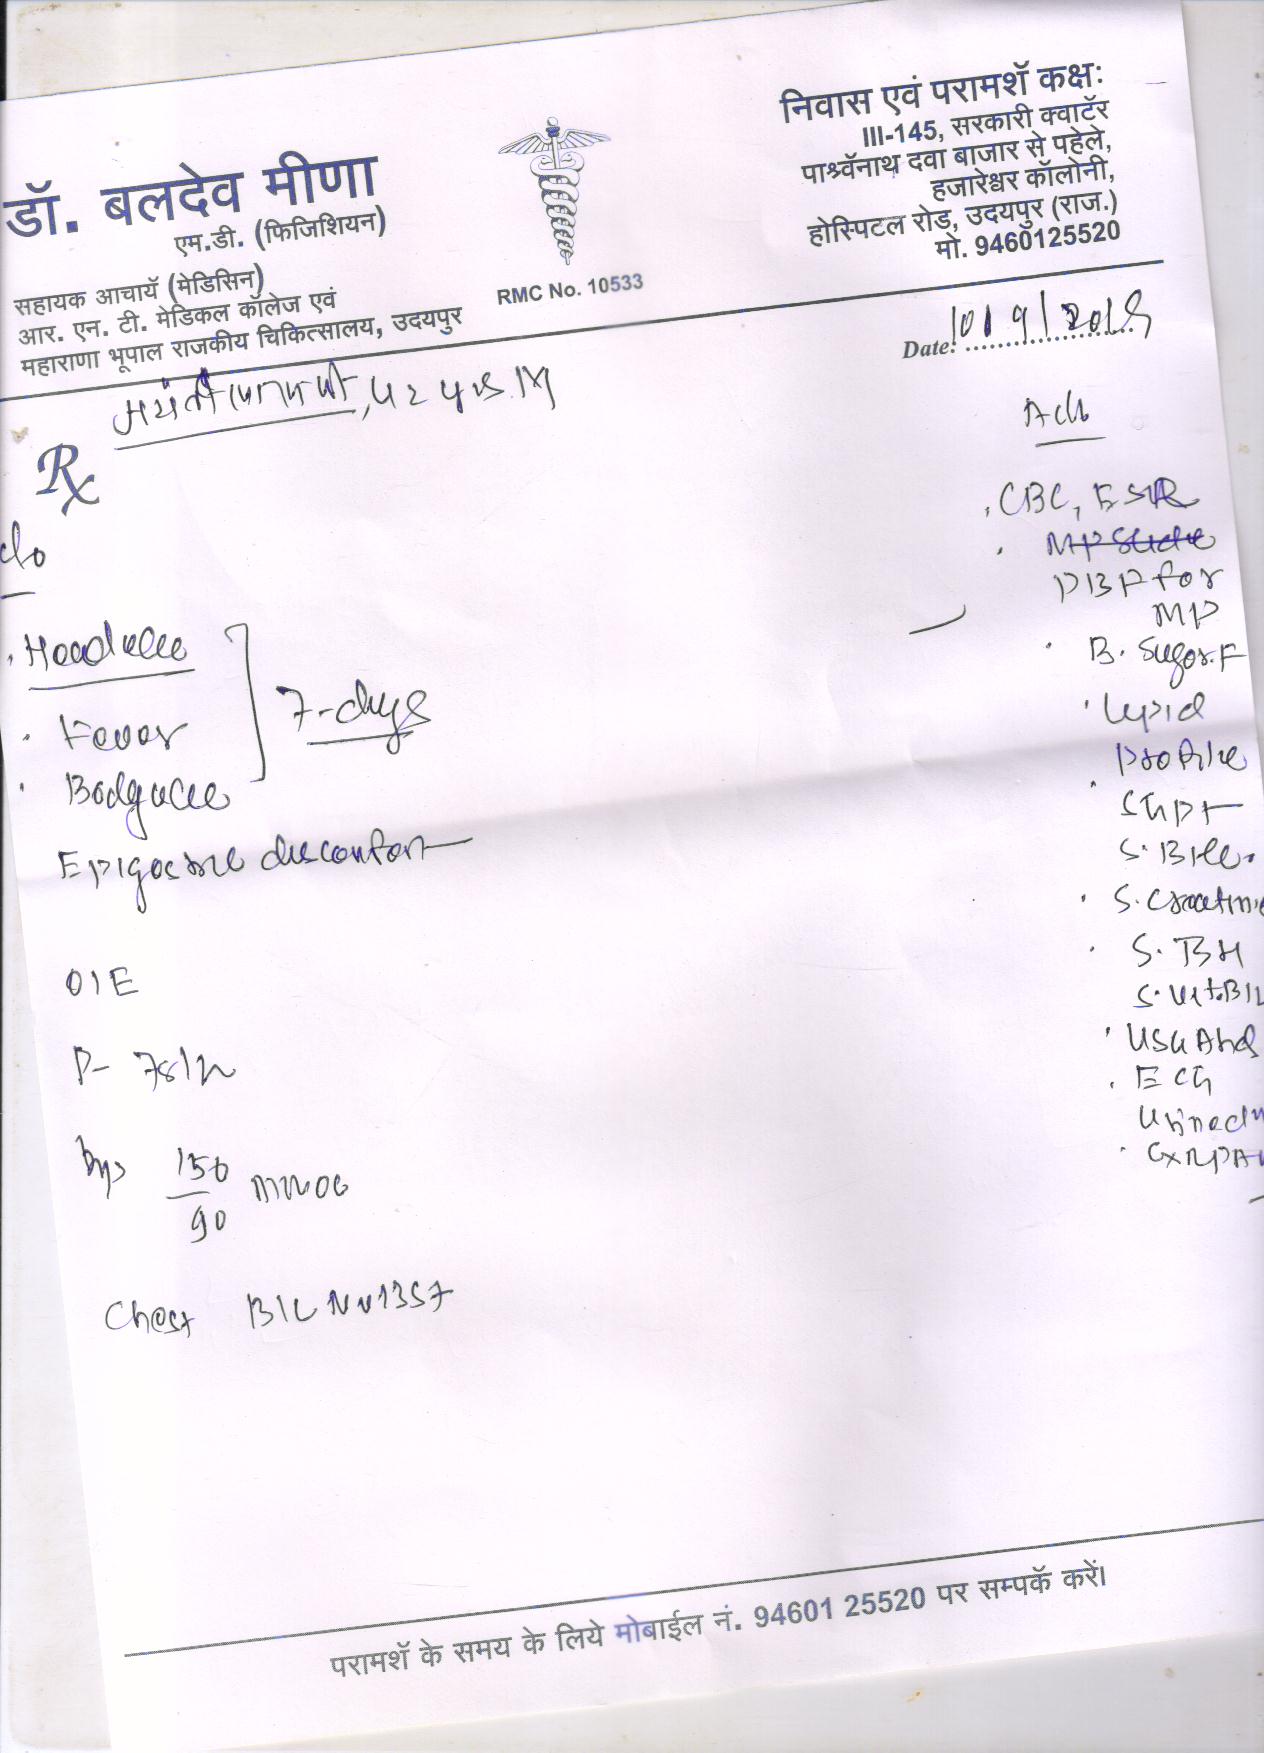 डॉ. बलदेव मीणा
एम.डी. (फिजिशियन)
सहायक आचार्य (मेडिसिन)
आर. एन. टी. मेडिकल कॉलेज एवं
महाराणा भूपाल राजकीय चिकित्सालय, उदयपुर
RMC No. 10533
निवास एवं परामर्श कक्षः
III-145, सरकारी क्वार्टर
पार्श्वनाथ दवा बाजार से पहेले,
हजारेश्वर कॉलोनी,
होस्पिटल रोड, उदयपुर (राज.)
मो. 9460125520
Date:
Rx
c/o
Headache
Fever
Bodyache
7-days
Epigastric discomfort
O/E
P- 78/m
Bp 150/90 mmOG
Chest B/L
Adv
CBC, ESR
MP Slide
PBF for
MP
B. Sugar.F
Lipid
Profile
SGPT
S. Bile.
S. Creatini
S.
S. Vit.B12
USG Abd
ECG
CXR PA
परामर्श के समय के लिये मोबाईल नं. 94601 25520 पर सम्पर्क करें।